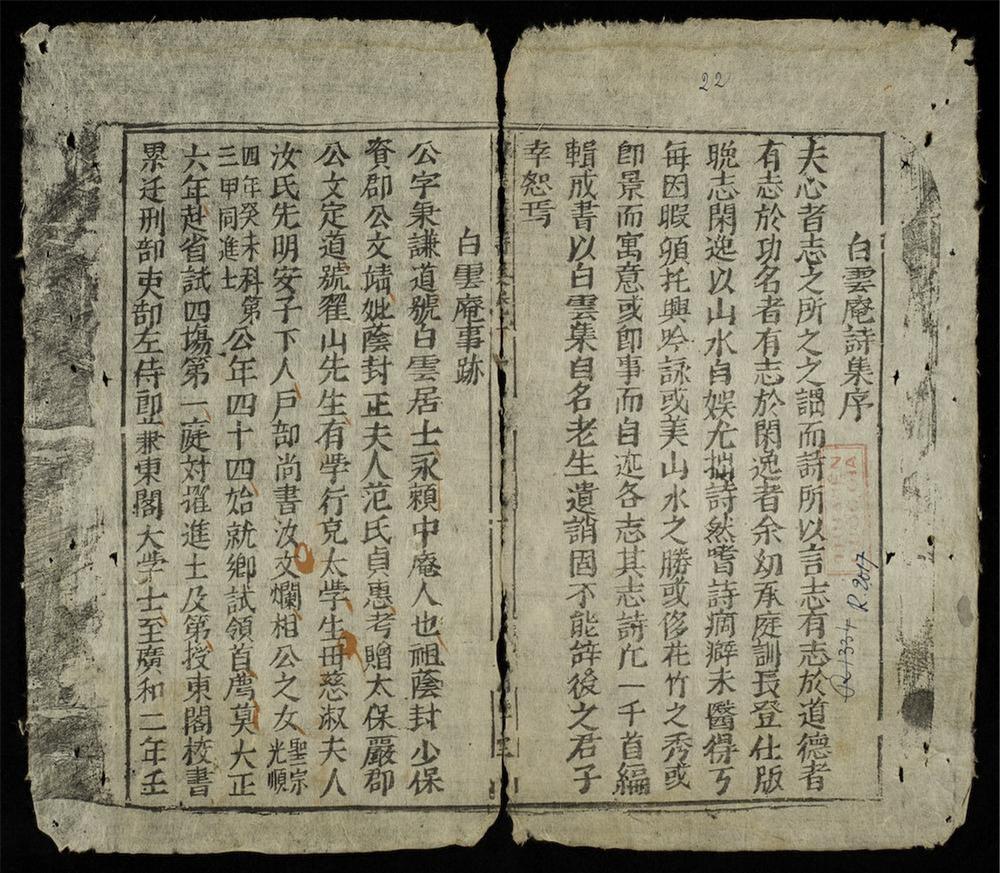 22
白雲庵詩集序
夫心者志之所之之謂而詩所以言志有志於道德者
有志於功名者有志於閑逸者余幼承庭訓長登仕版
晚志閑逸以山水自娛尤拙詩然嗜詩痼癖未醫得丂
每因暇頒托興吟詠或美山水之勝或侈花竹之秀或
卽景而寓意或卽事而自述各志其志詩凢一千首編
輯成書以白雲集自名老生遺誚固不能辝後之君子
幸恕焉
R.1334 R.2017
白雲庵事跡
公字秉謙道號白雲居士永賴中庵人也祖蔭封少保
郡公文靖妣蔭封正夫人范氏貞惠考贈太保嚴郡
公文定道號翟山先生有學行充太學生毌慈淑夫人
汝氏先明安子下人戶部尚書汝文爛相公之女聖宗光順
四年癸未科第三甲同進士公年四十四始就鄉試領首薦莫大正
六年赴省試四塲第一庭对擢進士及第授東閣校書
累迁刑部吏部左侍郎並兼東閣大學士至廣和二年壬